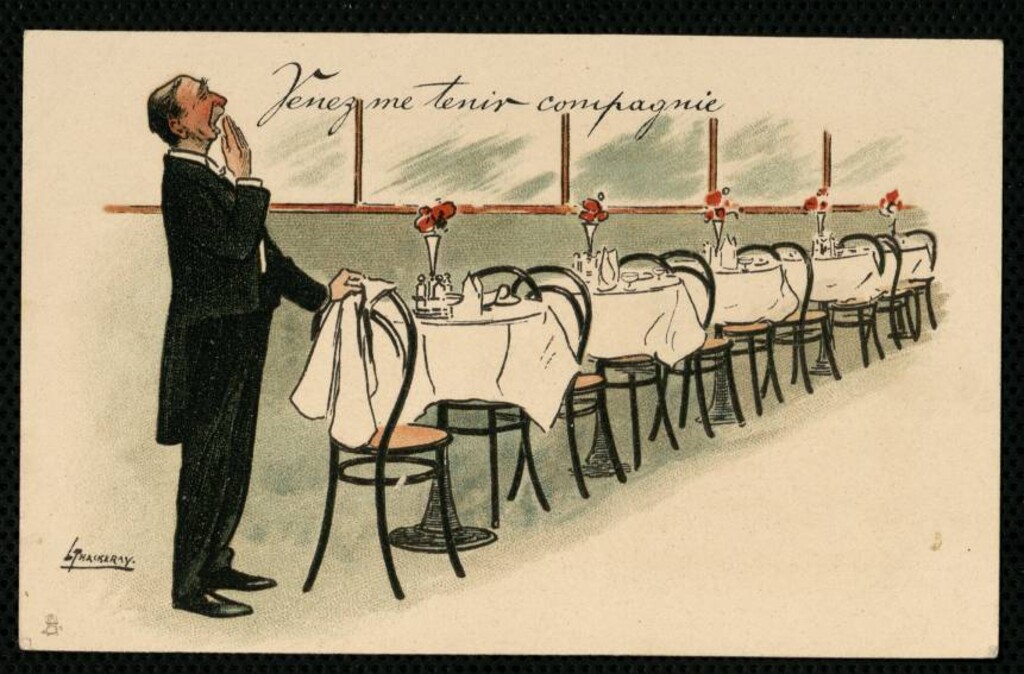 Venez me tenir compagnie
L Thackeray.